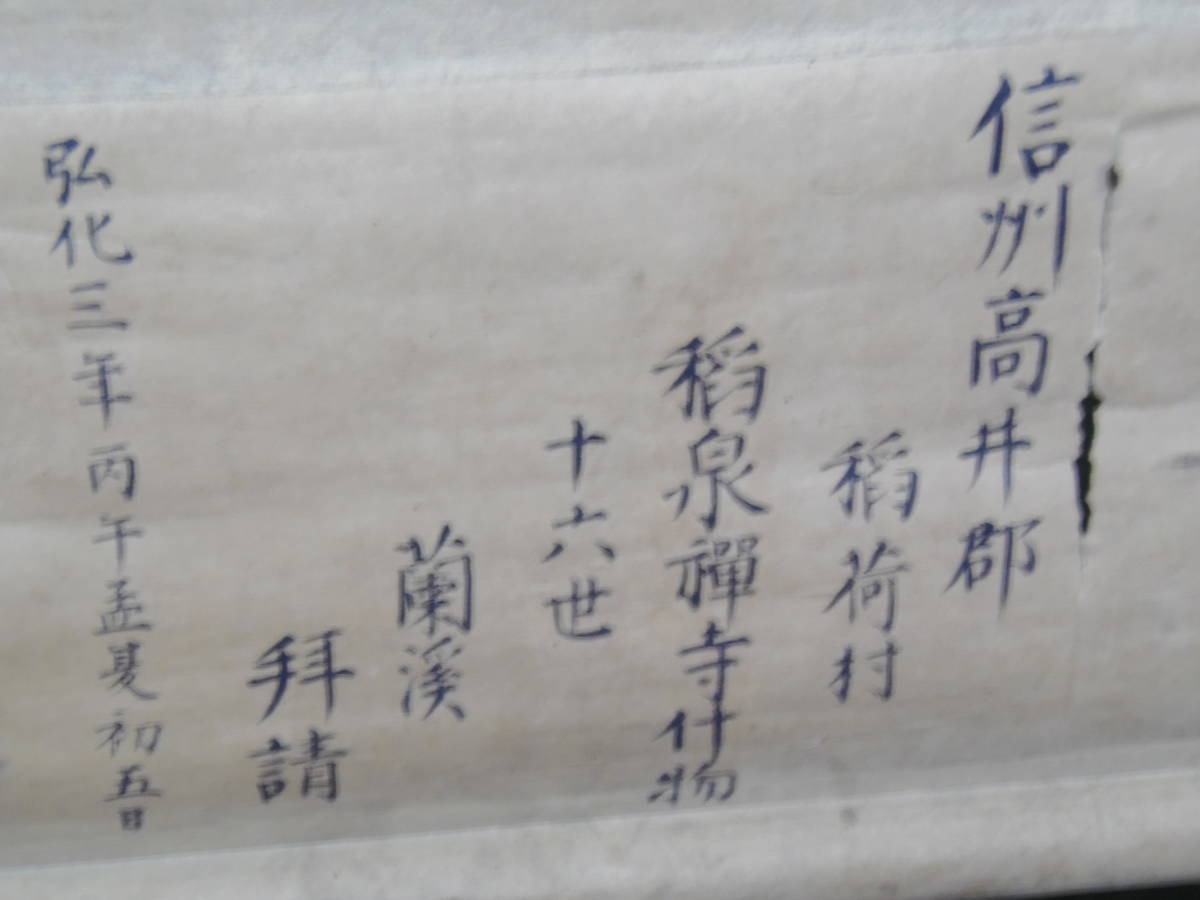 信州高井郡
稻荷村
稻泉禪寺什物
十六世
蘭溪
拜請
弘化三年丙午孟夏初五日